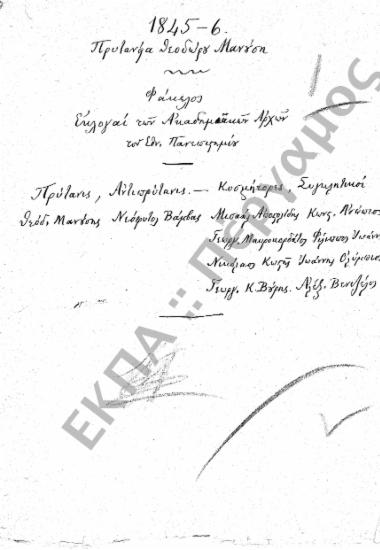 1845-6.
Πρυτανεία Θεοδώρου Μανούση
Φάκελος
Ἐκλογαὶ τῶν Ἀκαδημαϊκῶν Ἀρχῶν
τοῦ Ἐθν. Πανεπιστημίου
Πρύτανις, Ἀντιπρύτανις. — Κοσμήτορες, Συγκλητικοί
Θεόδ. Μανούσης Νεόφυτος Βάμβας Μισαὴλ Ἀποστολίδης Κωνς. Ἀσώπιος
Γεώργ. Μαυροκορδάτος Φίλιππος Ἰωάνν
Νικόλαος Κωστῆς Ἰωάννης Ὀλύμπιος
Γεωργ. Κ. Βούρης. Ἀλέξ. Βενιζέλος
ΕΚΠΑ :: Πέργαμος